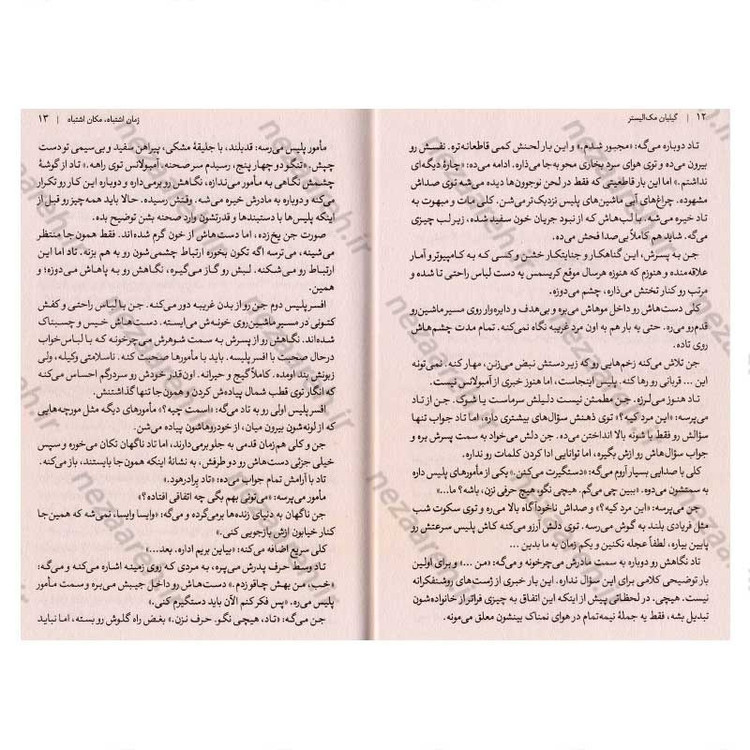 ۱۲ | گیلیان مک‌آلیستر
تاد دوباره می‌گه: «مجبور شدم.» و این بار لحنش کمی قاطعانه‌تره. نفسش رو
بیرون می‌ده و توی هوای سرد بخاری محو به‌جا می‌ذاره. ادامه می‌ده: «چارهٔ دیگه‌ای
نداشتم.» اما این بار قاطعیتی که فقط در لحن نوجوون‌ها دیده می‌شه توی صداش
مشهوده. چراغ‌های آبی ماشین‌های پلیس نزدیک‌تر می‌شن. کلی مات و مبهوت به
تاد خیره می‌شه. با لب‌هاش که از نبود جریان خون سفید شده، زیر لب چیزی
می‌گه. شاید هم کاملاً بی‌صدا فحش می‌ده.
جن به پسرش، این گناهکار و جنایتکار خشن و کسی که به کامپیوتر و آمار
علاقه‌منده و هنوزم که هنوزه هرسال موقع کریسمس یه دست لباس راحتی تا شده و
مرتب رو کنار تختش می‌ذاره، چشم می‌دوزه.
کلی دست‌هاش رو داخل موهاش می‌بره و بی‌هدف و دایره‌وار روی مسیر ماشین‌رو
قدم‌رو می‌ره. حتی یه بار هم به اون مرد غریبه نگاه نمی‌کنه. تمام مدت چشم‌هاش
روی تاده.
جن تلاش می‌کنه زخم‌هایی رو که زیر دستش نبض می‌زنن، مهار کنه. نمی‌تونه
این ... قربانی رو رها کنه. پلیس اینجاست، اما هنوز خبری از آمبولانس نیست.
تاد هنوز می‌لرزه. جن مطمئن نیست دلیلش سرماست یا شوک. جن از تاد
می‌پرسه: «این مرد کیه؟» توی ذهنش سؤال‌های بیشتری داره، اما تاد جواب تنها
سؤالش رو فقط با شونه بالا انداختن می‌ده. جن دلش می‌خواد به سمت پسرش بره و
جواب سؤال‌هاش رو ازش بگیره، اما توانایی ادا کردن کلمات رو نداره.
کلی با صدایی بسیار آروم می‌گه: «دستگیرت می‌کنن.» یکی از مأمورهای پلیس داره
به سمتشون می‌دوه. «ببین چی می‌گم. هیچی نگو، هیچ حرفی نزن، باشه؟ ما...»
جن می‌پرسه: «این مرد کیه؟» و صداش ناخودآگاه بالا می‌ره و توی سکوت شب
مثل فریادی بلند به گوش می‌رسه. توی دلش آرزو می‌کنه کاش پلیس سرعتش رو
پایین بیاره، لطفاً عجله نکنین و یکم زمان به ما بدین ...
تاد نگاهش رو دوباره به سمت مادرش می‌چرخونه و می‌گه: «من ...» و برای اولین
بار توضیحی کلامی برای این سؤال نداره. این بار خبری از ژست‌های روشنفکرانه
نیست. هیچی. در لحظاتی پیش از اینکه این اتفاق به چیزی فراتر از خانواده‌شون
تبدیل بشه، فقط یه جملهٔ نیمه‌تمام در هوای نمناک بینشون معلق می‌مونه.
زمان اشتباه، مکان اشتباه | ۱۳
مأمور پلیس می‌رسه: قدبلند، با جلیقهٔ مشکی، پیراهن سفید و بی‌سیمی تو دست
چپش. «تنگو دو چهار پنج، رسیدم سر صحنه. آمبولانس توی راهه.» تاد از گوشهٔ
چشمش نگاهی به مأمور می‌ندازه، نگاهش رو برمی‌داره و دوباره این کار رو تکرار
می‌کنه و دوباره به مادرش خیره می‌شه. وقتش رسیده. حالا باید همه‌چیز رو قبل از
اینکه پلیس‌ها با دستبندها و قدرتشون وارد صحنه بشن توضیح بده.
صورت جن یخ‌زده، اما دست‌هاش از خون گرم شده‌اند. فقط همون‌جا منتظر
می‌شینه، می‌ترسه اگه تکون بخوره ارتباط چشمی‌شون رو به هم بزنه. تاد اما این
ارتباط رو می‌شکنه. لبش رو گاز می‌گیره، نگاهش رو به پاهاش می‌دوزه؛ و
همین.
افسر پلیس دوم جن رو از بدن غریبه دور می‌کنه. جن با لباس راحتی و کفش
کتونی در مسیر ماشین‌روی خونه‌ش می‌ایسته. دست‌هاش خیس و چسبناک
شده‌اند. نگاهش رو از پسرش به سمت شوهرش می‌چرخونه که با لباس خواب
درحال صحبت با افسر پلیسه. باید با مأمورها صحبت کنه. ناسلامتی وکیله، ولی
زبونش بند اومده. کاملاً گیج و حیرانه. اون‌قدر خودش رو سردرگم احساس می‌کنه
که انگار توی قطب شمال پیاده‌ش کردن و همون‌جا تنها گذاشتنش.
افسر پلیس اولی رو به تاد می‌گه: «اسمت چیه؟» مأمورهای دیگه مثل مورچه‌هایی
که از لونه‌شون بیرون میان، از خودروهاشون پیاده می‌شن.
جن و کلی هم‌زمان قدمی به جلو برمی‌دارند، اما تاد ناگهان تکان می‌خوره و سپس
خیلی جزئی دست‌هاش رو دو طرفش، به نشانهٔ اینکه همون‌جا بایستند، باز می‌کنه.
تاد با آرامش تمام جواب می‌ده: «تاد برادرهود.»
مأمور می‌پرسه: «می‌تونی بهم بگی چه اتفاقی افتاده؟»
جن ناگهان به دنیای زنده‌ها برمی‌گرده و می‌گه: «وایسا وایسا، نمی‌شه که همین‌جا
کنار خیابون ازش بازجویی کنی.»
کلی سریع اضافه می‌کنه: «بیاین بریم اداره. بعد...»
تاد وسط حرف پدرش می‌پره، به مردی که روی زمینه اشاره می‌کنه و می‌گه:
«خب، من بهش چاقو زدم.» دست‌هاش رو داخل جیبش می‌بره و سمت مأمور
پلیس می‌ره. «پس فکر کنم الآن باید دستگیرم کنی.»
جن می‌گه: «تاد، هیچی نگو. حرف نزن.» بغض راه گلوش رو بسته، اما نباید
nezaareh.ir